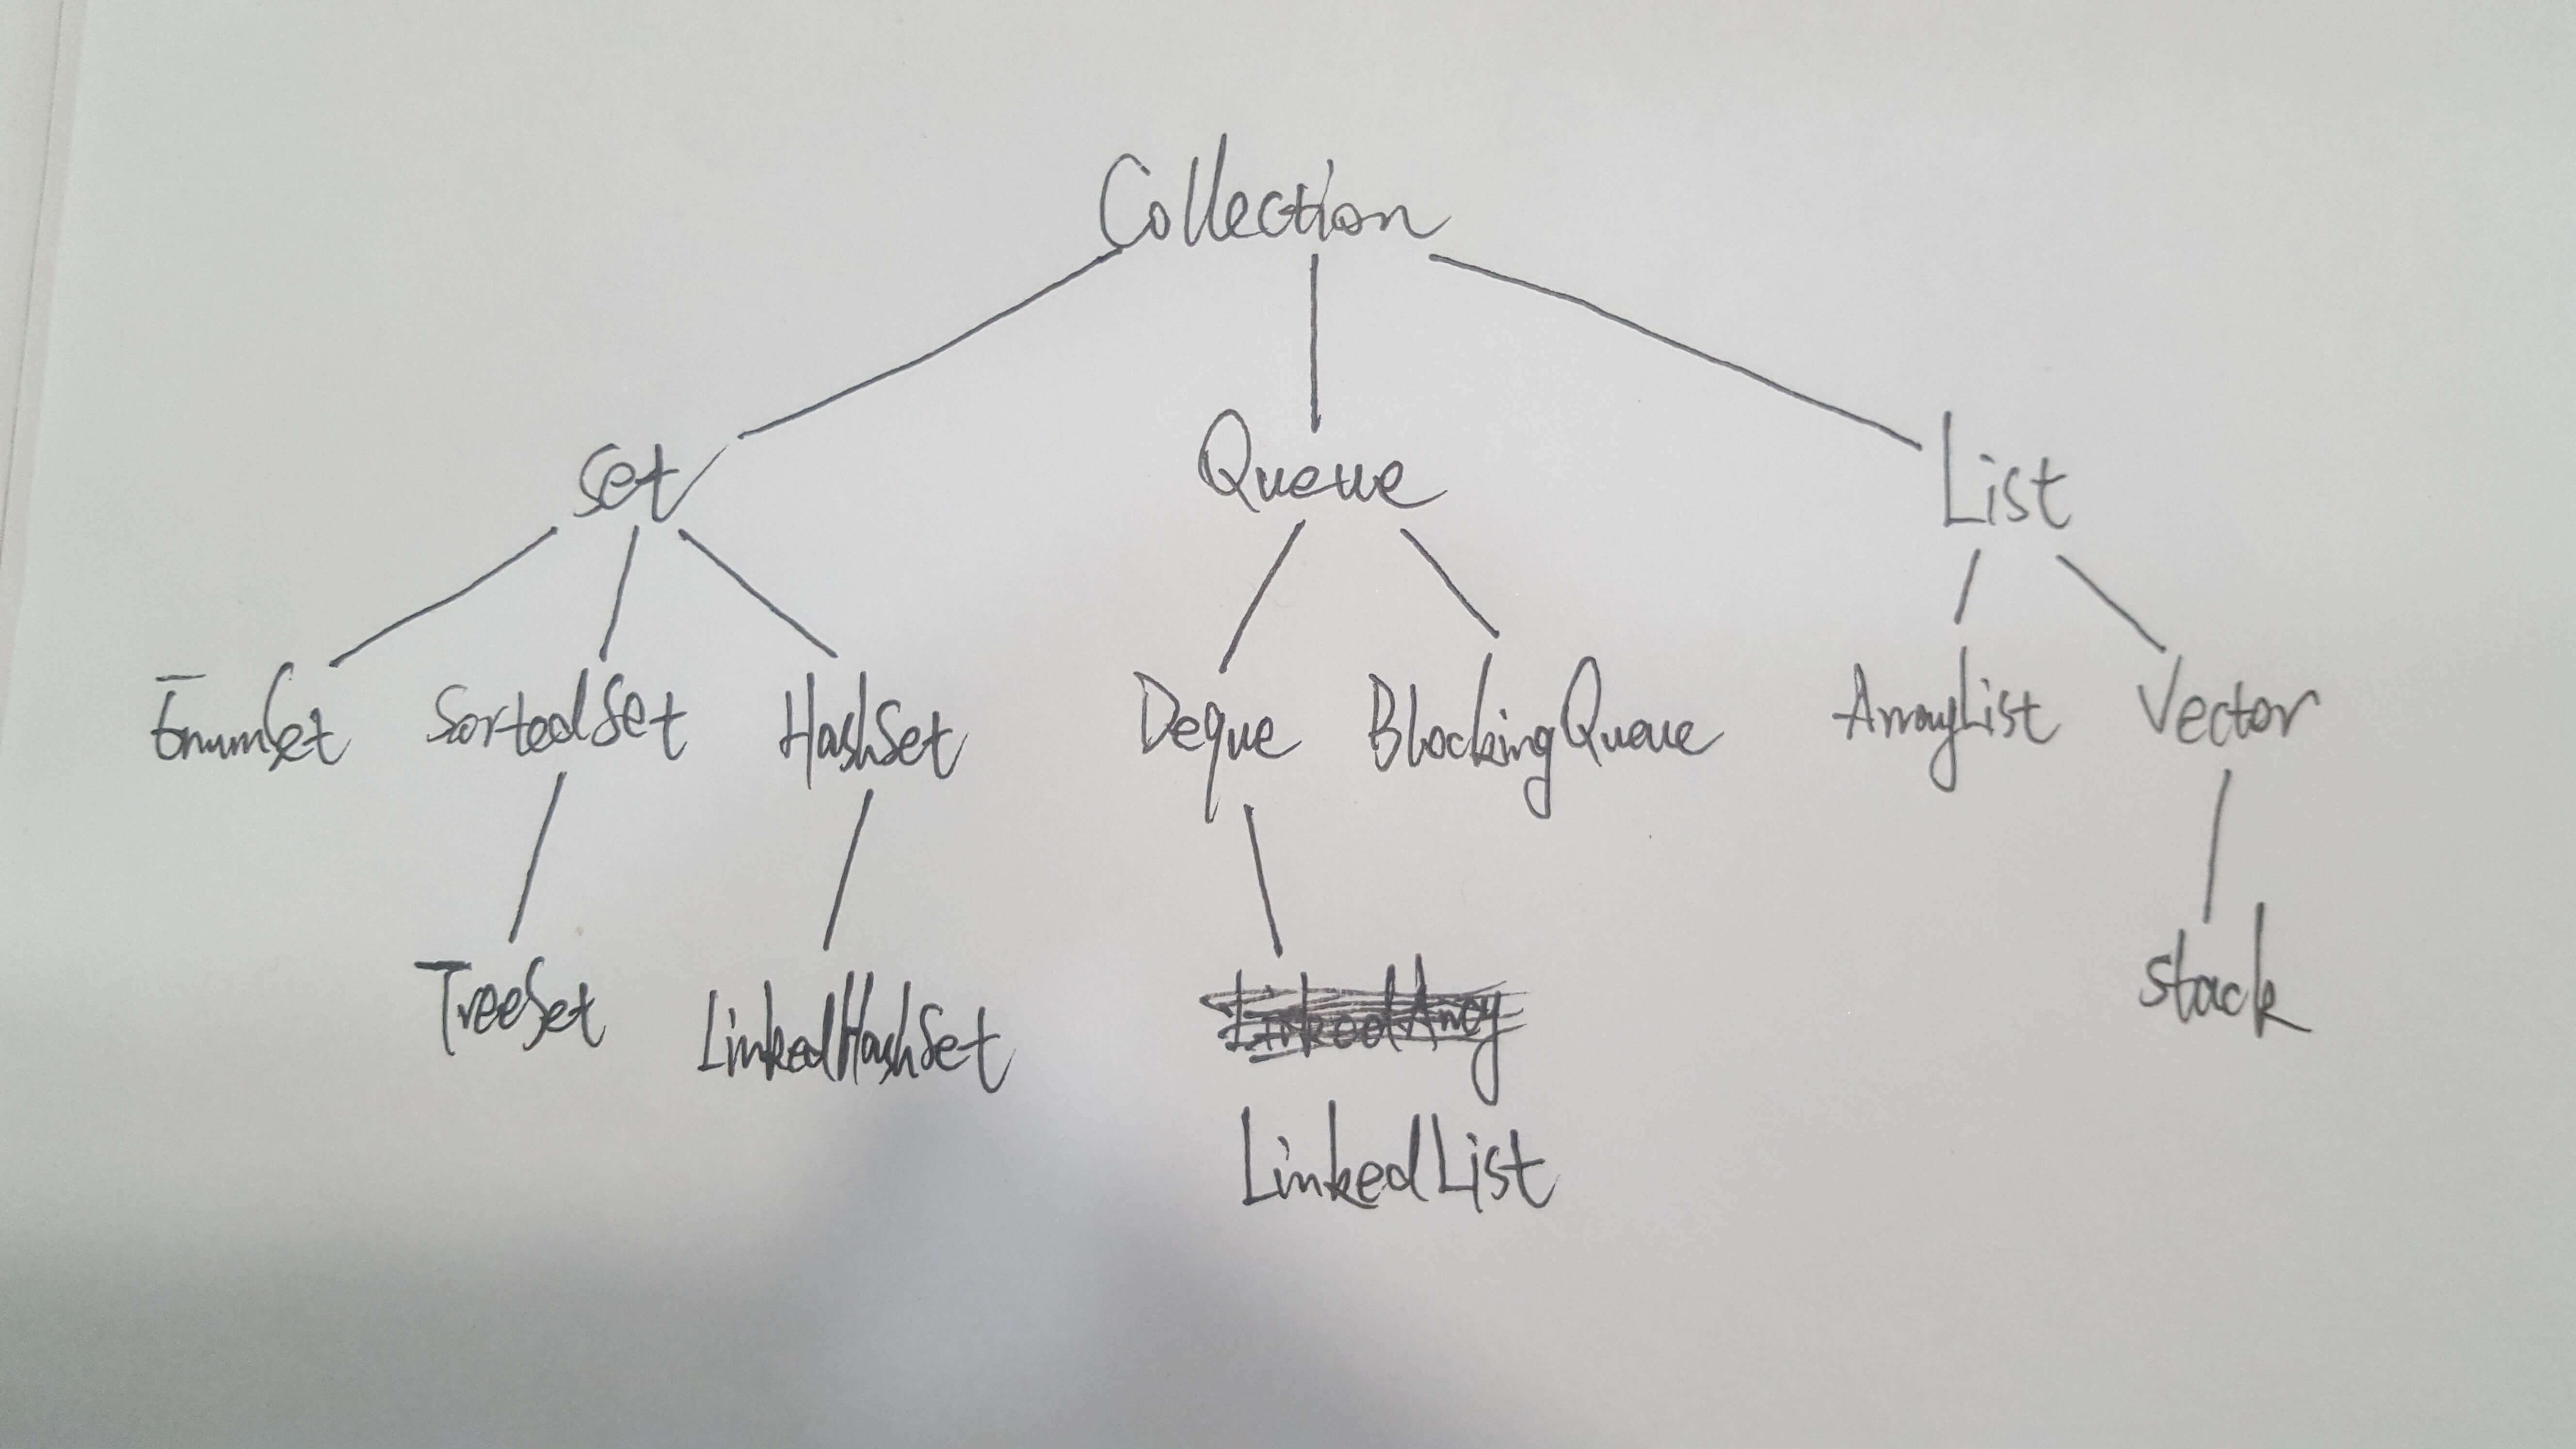 Collection
Set Queue List
EnumSet SortedSet HashSet Deque BlockingQueue ArrayList Vector
TreeSet LinkedHashSet stack
LinkedList